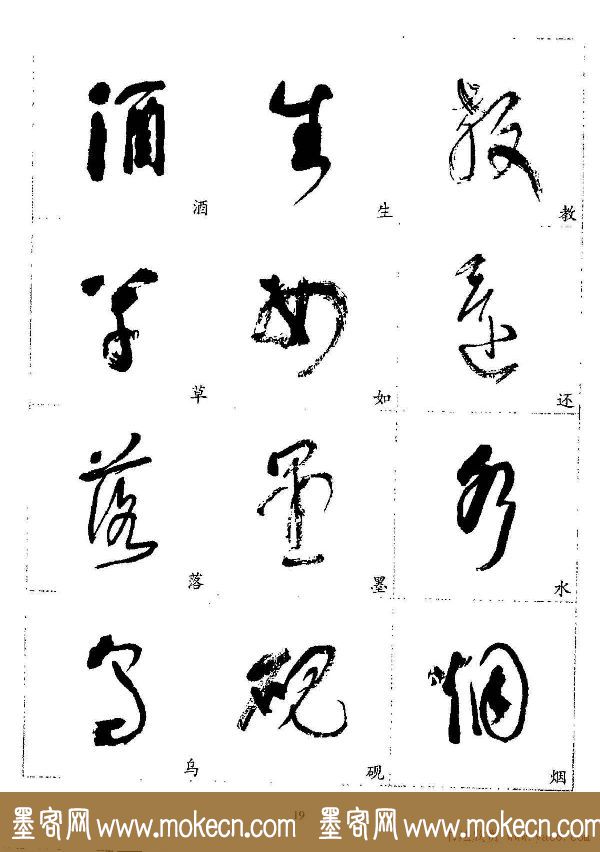 酒 生 教
草 如 还
落 墨 水
乌 砚 烟
19
墨客网 www.mokecn.com 墨客网 www.mokecn.com